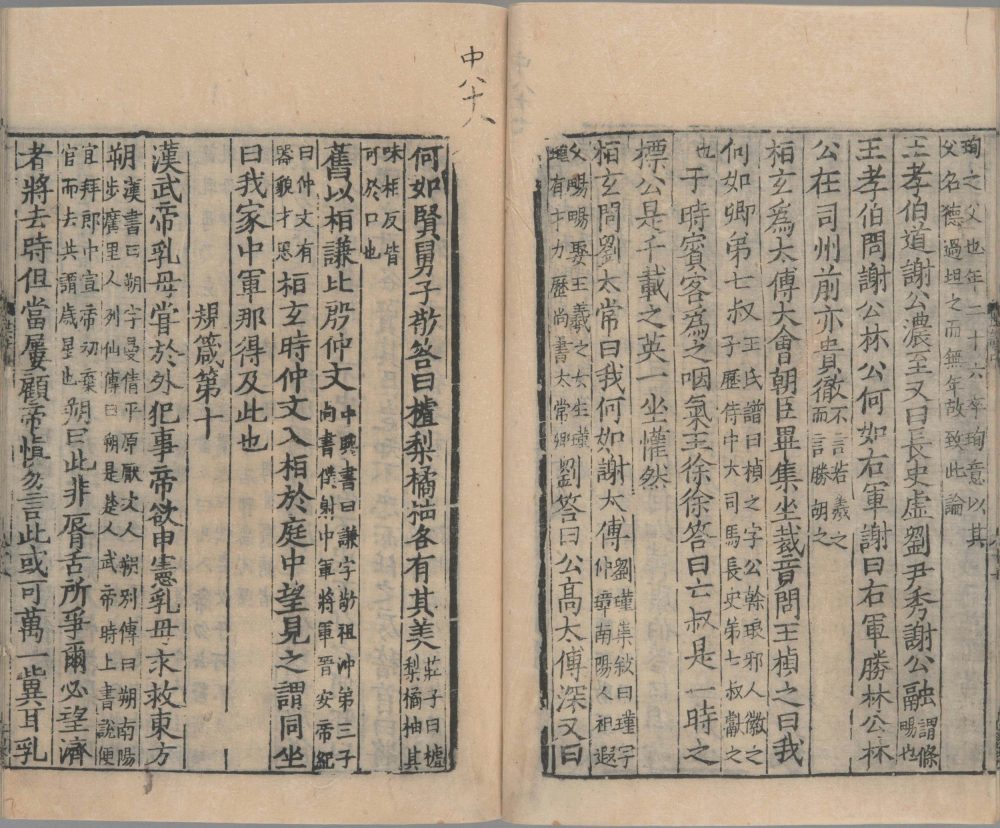 珣之父也年二十六卒珣意以其
父名德過坦之而無年故致此論
王孝伯道謝公濃至又曰長史虛劉尹秀謝公融謂條暢也
王孝伯問謝公林公何如右軍謝曰右軍勝林公林
公在司州前亦貴徹不言若羲之而言勝胡之
桓玄為太傅大會朝臣畢集坐裁音問王楨之曰我
何如卿弟七叔王氏譜曰楨之字公幹琅邪人徽之子歷侍中大司馬長史第七叔獻之
也于時賓客為之咽氣王徐徐答曰亡叔是一時之
標公是千載之英一坐懽然
桓玄問劉太常曰我何如謝太傅劉瑾集敘曰瑾字仲璋南陽人祖遐
父暢暢娶王羲之女生瑾瑾有才力歷尚書太常卿劉答曰公高太傅深又曰
中八十八
何如賢舅子敬答曰樝梨橘柚各有其美莊子曰樝梨橘柚其
味相反皆可於口也
舊以桓謙比殷仲文中興書曰謙字敬祖沖第三子尚書僕射中軍將軍晉安帝紀
曰仲文有器貌才思桓玄時仲文入桓於庭中望見之謂同坐
曰我家中軍那得及此也
規箴第十
漢武帝乳母嘗於外犯事帝欲申憲乳母求救東方
朔漢書曰朔字曼倩平原厭次人朔別傳曰朔南陽步廣里人列仙傳曰朔是楚人武帝時上書說便
宜拜郎中宣帝初棄官而去共謂歲星也朔曰此非脣舌所爭爾必望濟
者將去時但當屢顧帝慎勿言此或可萬一冀耳乳